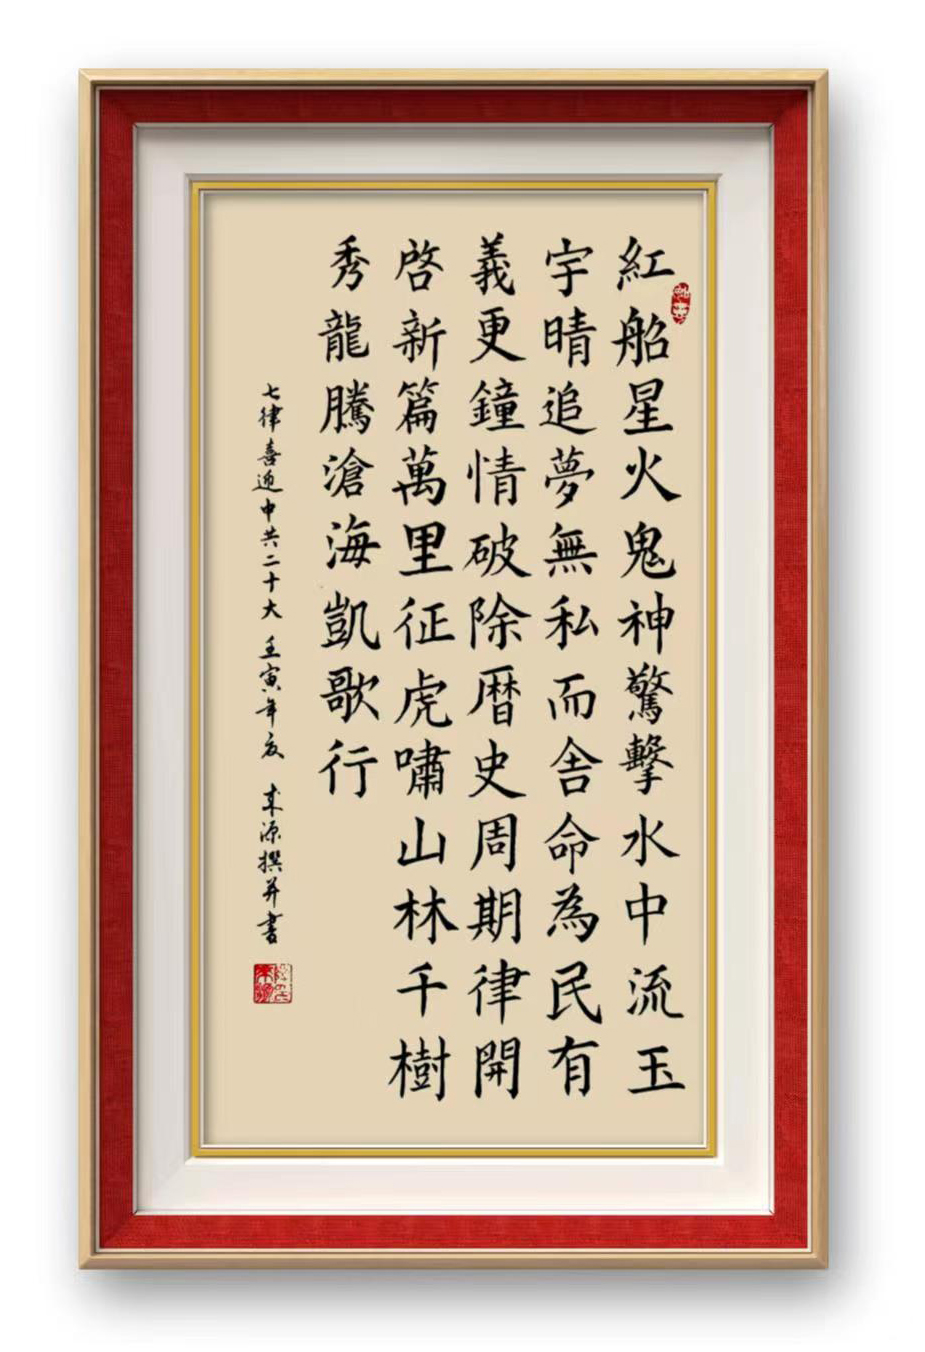 紅船星火鬼神驚擊水中流玉
宇晴追夢無私而舍命為民有
義更鐘情破除曆史周期律開
啓新篇萬里征虎嘯山林千樹
秀龍騰滄海凱歌行
七律喜迎中共二十大 壬寅年夜 来源撰并書